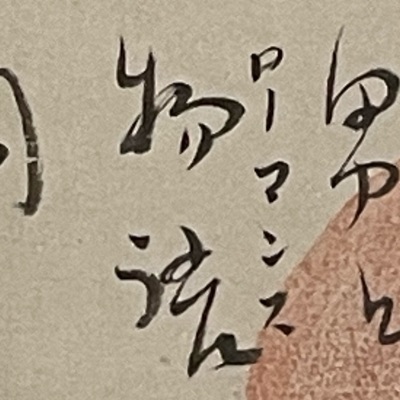 男
ローマンス
物語